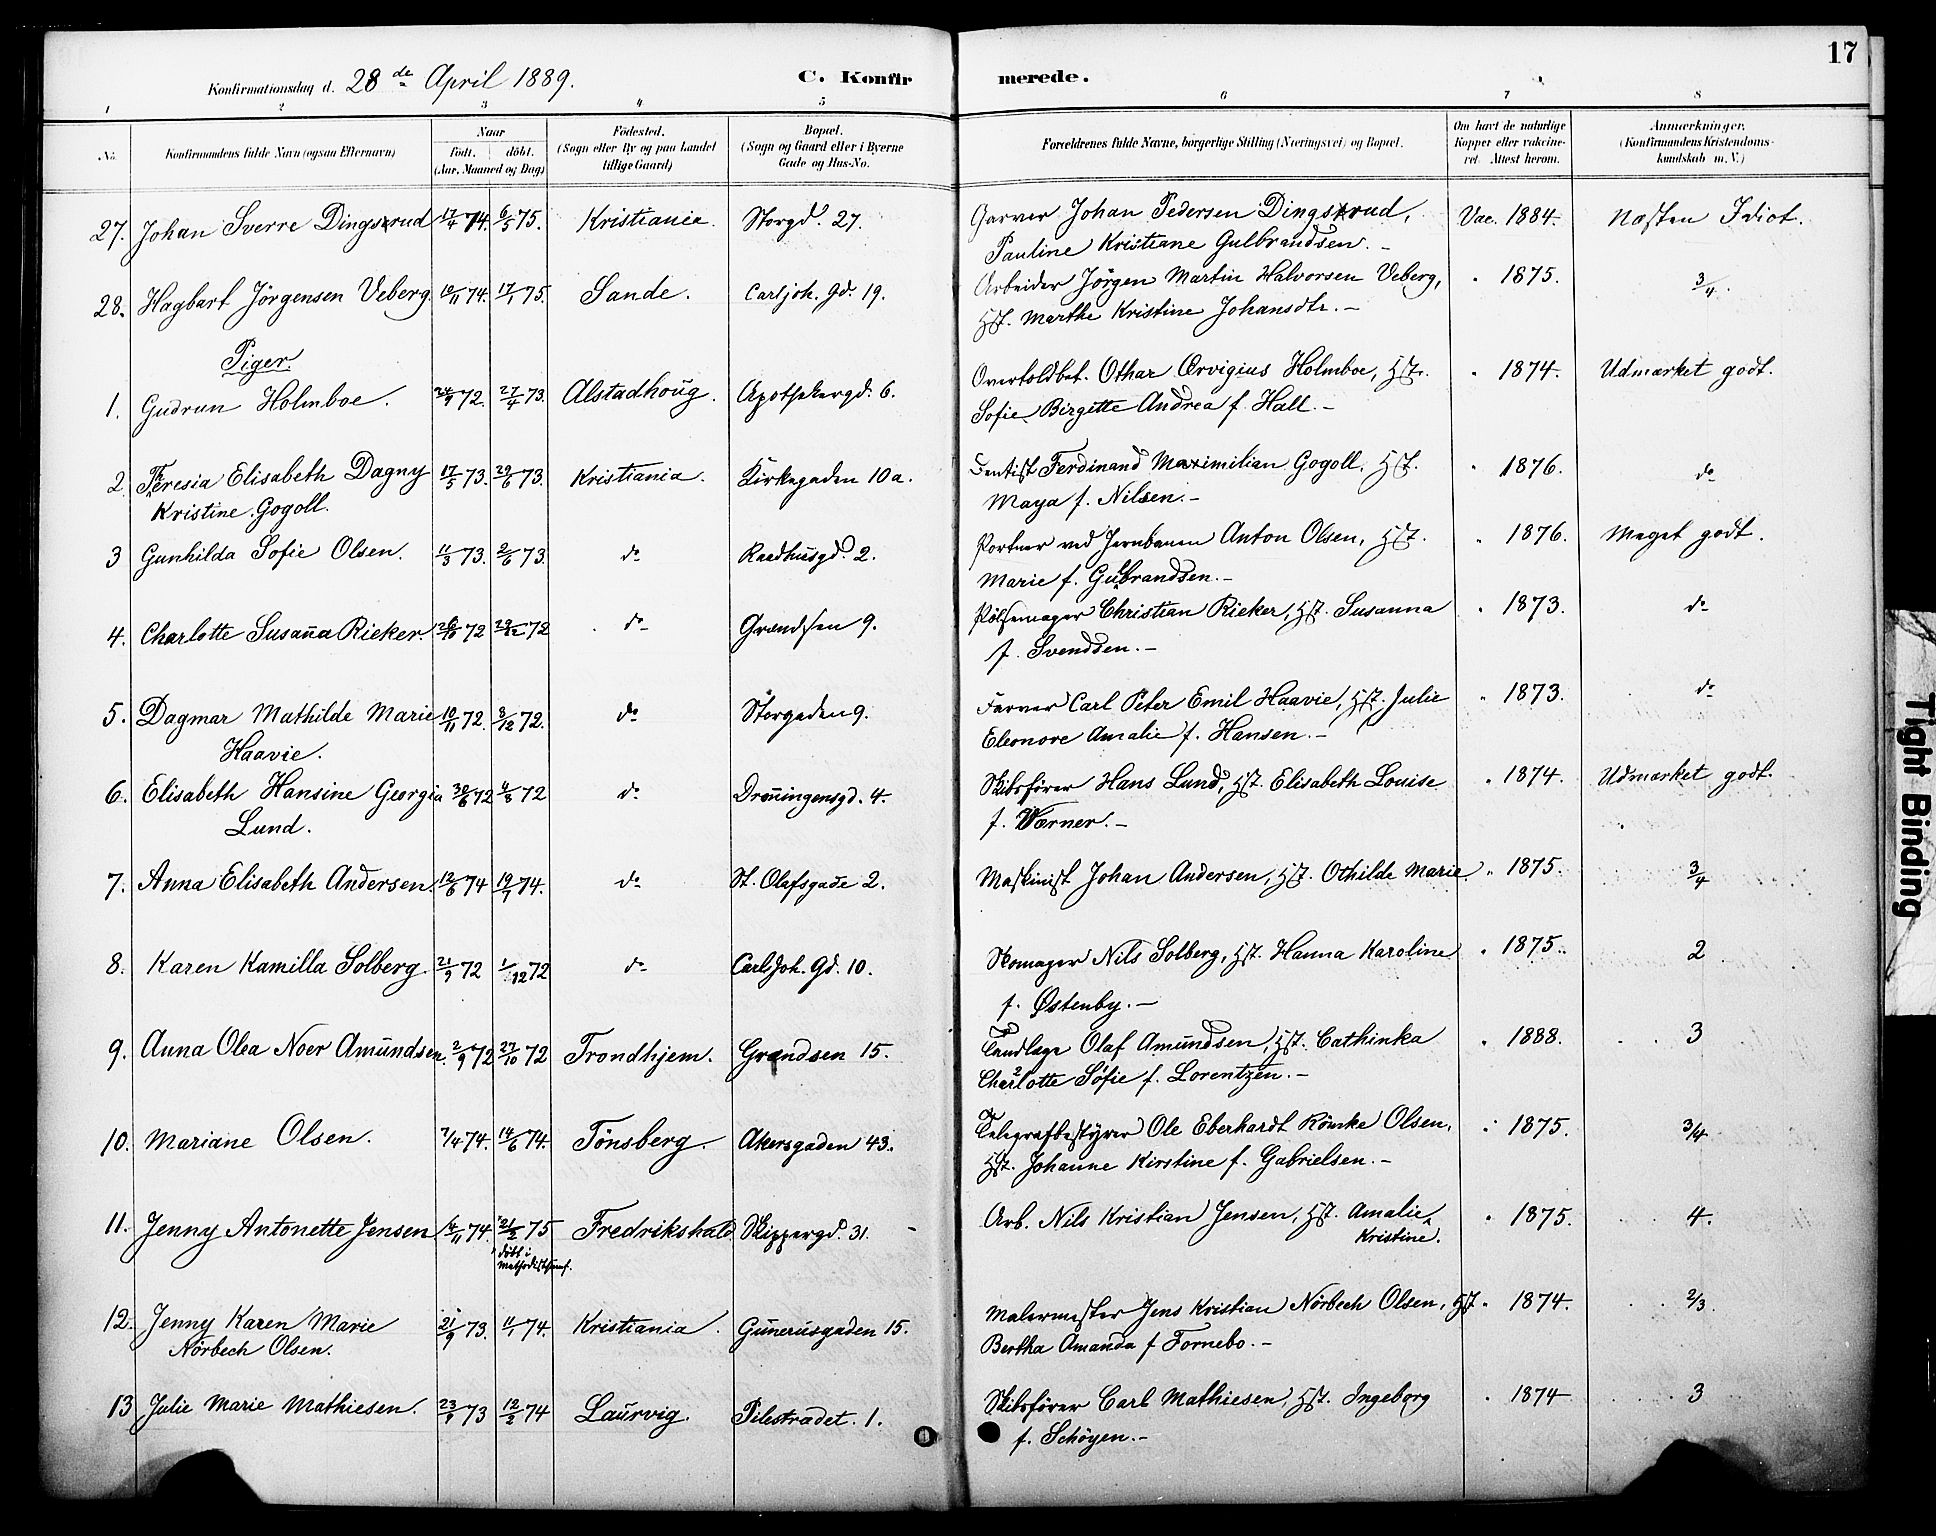 17
Konfirmationsdag d. 28de April 1889.
C. Konfirmerede.
1 2 3 4 5 6 7 8
No. Konfirmandens fulde Navn (ogsaa Efternavn) Naar Födt. döbt. (Aar, Maaned og Dag) Födested. (Sogn eller By og paa Landet tillige Gaard) Bopæl. (Sogn og Gaard eller i Byerne Gade og Hus-No. Forældrenes fulde Navne, borgerlige Stilling (Næringsvei) og Bopæl. Om havt de naturlige Kopper eller vakcineret. Attest herom. Anmærkninger. (Konfirmandens Kristendomskundskab m. V.)
27. Johan Sverre Dingsrud 17/4 74. 6/5 75. Kristiania. Storgd. 27. Garver Johan Pedersen Dingsrud, Vac. 1884. Næsten Idiot.
Pauline Kristiane Gulbrandsen. -
28. Hagbart Jörgensen Veberg 10/11 74. 17/1 75. Sande. Carl joh. Gd. 19. Arbeider Jörgen Martin Halvorsen Veberg, " 1875. 3/4.
Hst. Marthe Kristine Johansdtr. -
Piger.
1. Gudrun Holmboe. 24/9 72. 27/4 73. Alstadhoug. Apothekergd. 6. Overtoldbet. Othar Ervigius Holmboe, Hst. " 1874. Udmærket godt.
Sofie Birgitte Andrea f. Hall. -
2. Theresia Elisabeth Dagny 17/5 73. 29/6 73. Kristiania. Kirkegaden 10a. Dentist Ferdinand Maximilian Gogoll. Hst. " 1876. do
Kristine Gogoll. Maya f. Nilsen. -
3 Gunhilda Sofie Olsen. 11/3 73. 2/6 73. do Raadhusgd. 2. Portner ved Jernbanen Anton Olsen, Hst. " 1876. Meget godt.
Marie f. Gulbrandsen. -
4. Charlotte Susanna Rieker. 72 29/12 72 do Grændsen 9. Pölsemager Christian Rieker, Hst. Susanna " 1873. do
f. Svendsen. -
5. Dagmar Mathilde Marie 10/11 72. 8/12 72. do Storgaden 9. Farver Carl Peter Emil Haavie, Hst. Julie " 1873. do
Haavie. Eleonore Amalie f. Hansen. -
6. Elisabeth Hansine Georgia 30/6 72 72 do Dronningensgd. 4. Skibsfører Hans Lund, Hst. Elisabeth Louise " 1874. Udmærket godt.
Lund. f. Wærner. -
7. Anna Elisabeth Andersen. 12/6 74 19/7 74. do St. Olafsgade 2. Maskinist Johan Andersen, Hst. Othilde Marie. " 1875. 3/4
8. Karen Kamilla Solberg 21/9 72 1/12 72 do Carl Joh. Gd. 10. Skomager Nils Solberg, Hst. Hanna Karoline " 1875. 2
f. Østenby. -
9. Anna Olea Noer Amundsen. 2/9 72 27/10 72 Trondhjem. Grændsen 15. Tandlæge Olaf Amundsen, Hst. Cathinka " 1888. 3
Charlotte Sofie f. Lorentzen. -
10. Mariane Olsen. 7/4 74. 14/6 74. Tönsberg. Akersgaden 43. Telegrafbestyrer Ole Eberhardt Römke Olsen, " 1875. 3/4
Hst. Johanne Kirstine f. Gabrielsen. -
11. Jenny Antonette Jensen 14/11 74. 21/2 75 Fredrikshald. Skippergd. 31. Arb. Nils Kristian Jensen, Hst. Amalie " 1875. 4.
döbt i Methodistsamf. Kristine.
12. Jenny Karen Marie 21/9 73. 11/1 74. Kristiania. Gunerusgaden 15. Malermester Jens Kristian Nörbech Olsen, Hst. " 1874. 2/3.
Nörbech Olsen. Bertha Amanda f. Fornebo. -
13 Julie Marie Mathiesen. 23/9 73 12/2 74 Laurvig. Pilestrædet. 1. Skibsfører Carl Mathiesen, Hst. Ingeborg " 1874 3
f. Schöyen. -
Tight Binding